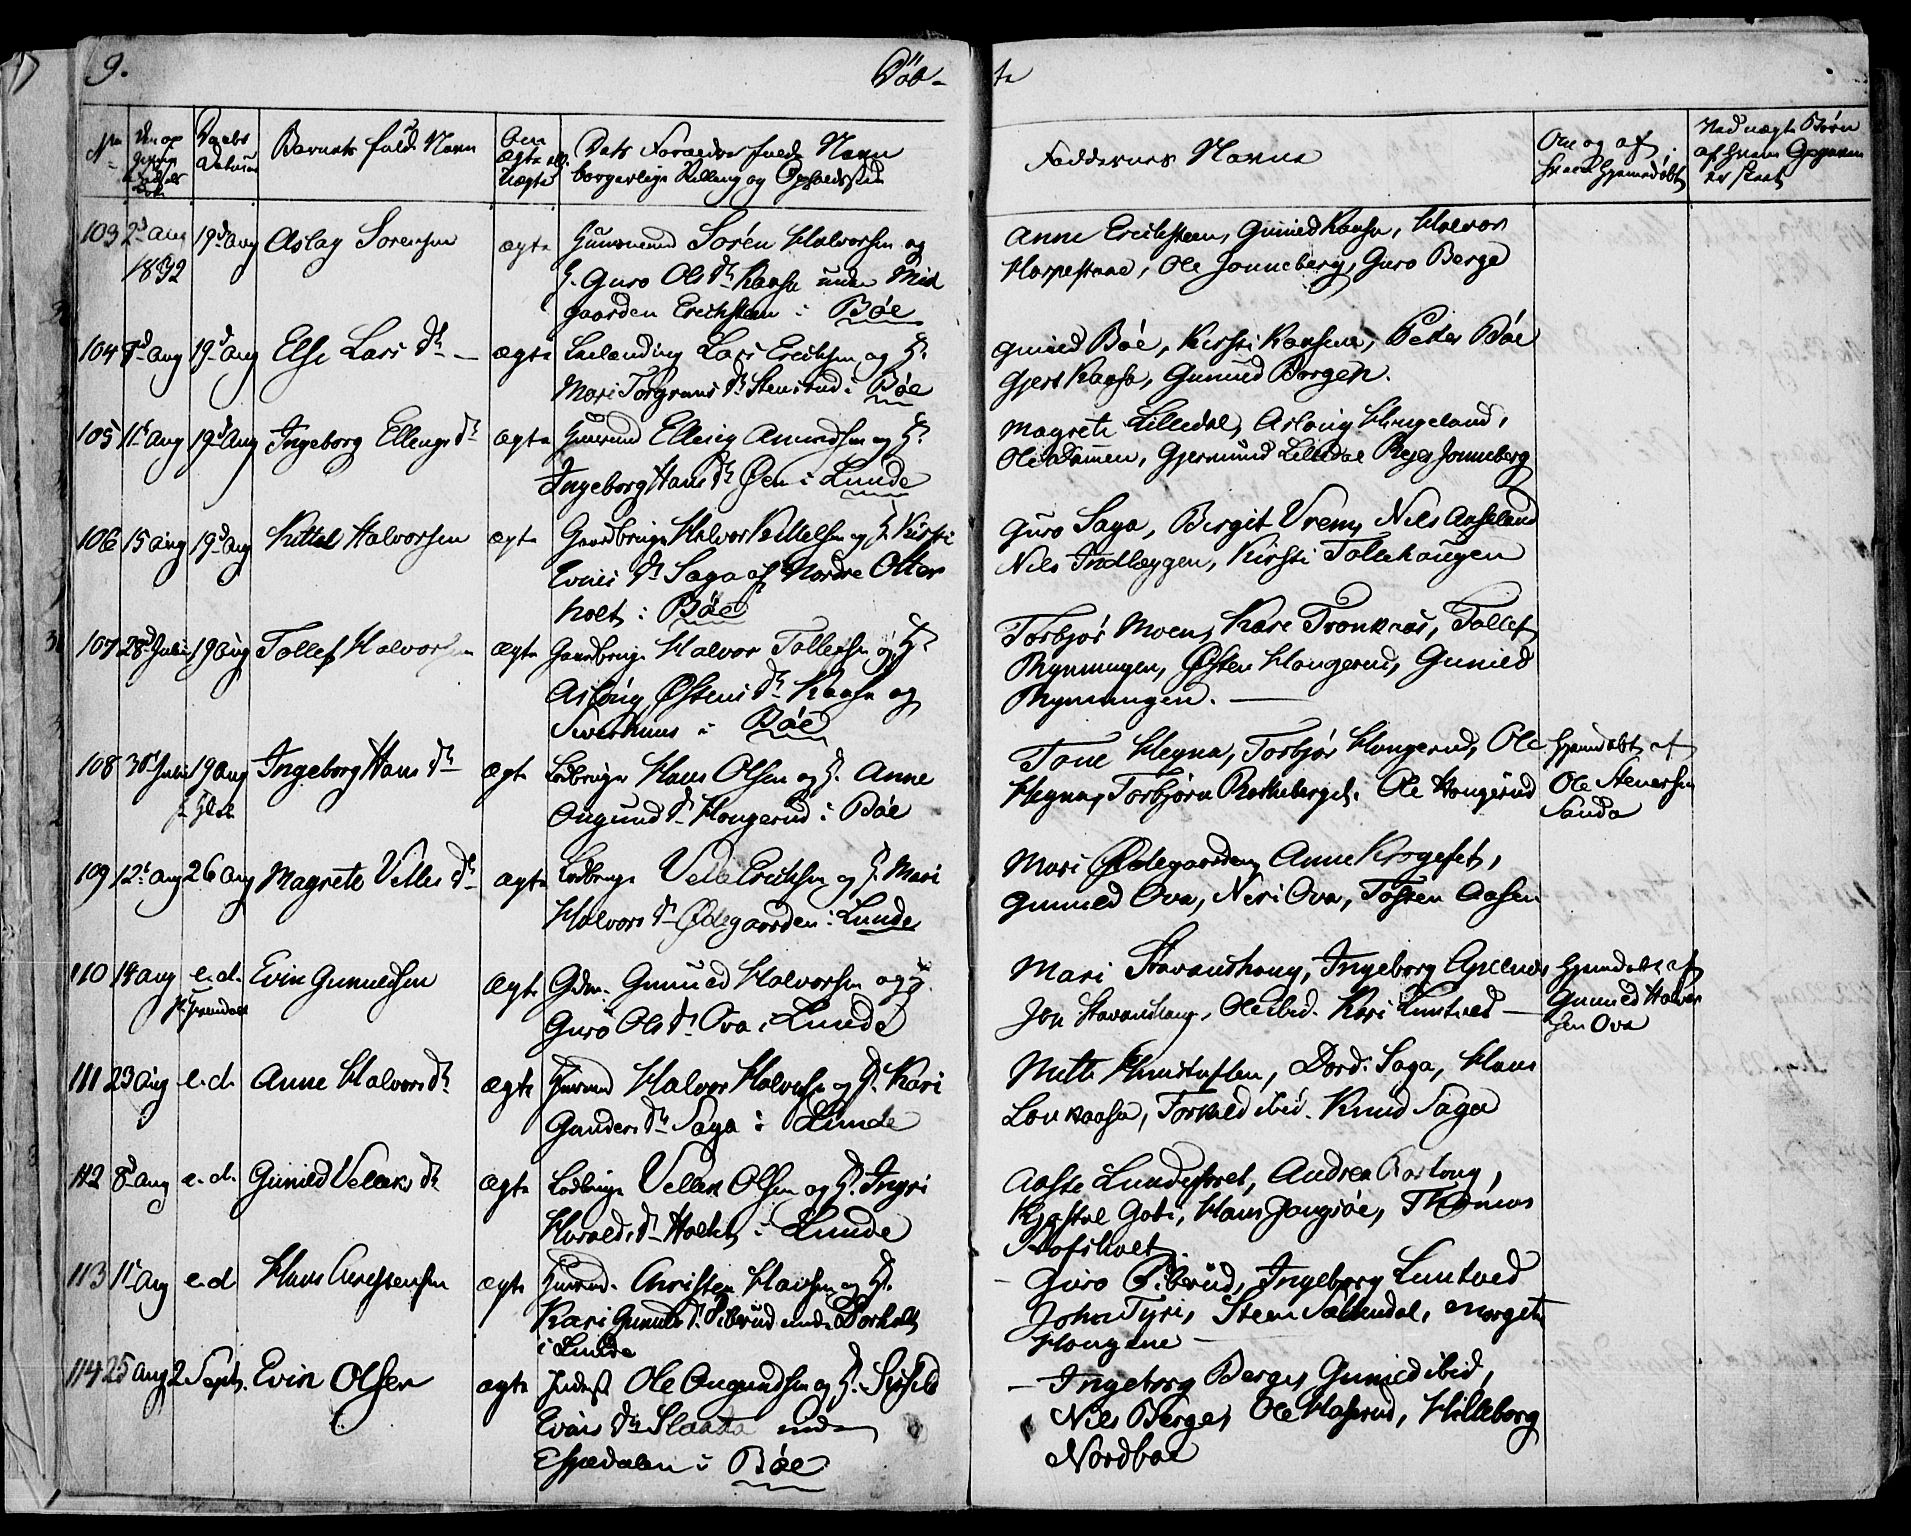 9.
Døb-
te
No
Daabs
Datum
Barnets fulde Navn
Om
ægte ell.
uægte
Dets Foraeldres fulde Navn
borgerlige Stilling og Opholdssted
Faddernes Navne
Om og af
hvem hjemmedøbt
Ved uægte Børn
af hvem Opgaven
er skeet
103 2d Aug 19d Aug Aslag Sorensen ægte Huusmand Sorén Halvorsen og
1832
H. Guro Ols Dr. Kaasa under Mid
gaarden Erichsteen i Bøe
Anne Erichsteen, Gunild Kaasa, Halvor
Harpestene, Ole Jonneberg, Guro Berge
104 8d Aug 19d Aug Else Lars Dr. ægte Lars Erichsen og H.
Mari Torgrims Dr. Stensrud i Bøe
Gunild Bøe, Kirsti Kaasene, Peder Bøe
Gjert Kaasa, Gunuld Borgen.
105 11t Aug 19d Aug Ingeborg Ellings Dr. ægte Huusmand Elling Amundsen og H.
Ingeborg Hans Dr. Øen i Lunde
Magrete Lilledal, Aslaug Haugeland,
Ole Dammen, Gjermund Lilledal Roger Jonneberg
106 15 Aug 19d Aug Kittel Halvorsen ægte Gaardbruger Halvor Kittelsen og H. Kirsti
Evens Dr. Saga af Nordre Otter
holt i Bøe
Guro Saga, Birgit Vrem, Nils Aaseland
Nils Indlæggen, Kirsti Tollehaugen
107 28d Julii 19 Aug Tollef Halvorsen ægte Gaardbruger Halvor Tollefsen og H.
Aslaug Østens Dr. Kaasa og
Siverhuus i Bøe
Torbjør Moen, Kare Tronknas, Tollef
Rynningen, Østen Haugerud, Gunild
Rynningen.
108 30t Julii 19 Aug Ingeborg Hans Dr. ægte Lodbruger Hans Olsen og H. Anne
Ongund Dr. Haugerud i Bøe
Tone Hegna, Torbjør Haugerud, Ole
Hegna, Torbjørn Rotheberget. Ole Haugerud
Hjemdøbt af
Ole Stenersen
Sanda
109 12t Aug 26 Aug Magrete Vetles Dr. ægte Lodbruger Vetle Erichsen og H. Mari
Halvors Dr. Ødegaarden i Lunde
Mari Ødegaarden, Anne Krogeset,
Gunuld Ova, Neri Ova, Tosten Aasen
110 14 Aug e.d. Evin Gunuldsen ægte Gdm. Gunuld Halvorsen og H.
Guro Ols Dr. Ova i Lunde
Mari Stavanshaug, Ingeborg
Jon Stavanshaug, Ole ibid. Kari Lundved
Hjemdøbt af
Gunuld Halvor
sen Ova
111 23 Aug e.d. Anne Halvors Dr. ægte Huusmand Halvor Halvorsen og H. Kari
Gunders Dr. Saga i Lunde
Dord. Saga, Hans
Lonkaasa, Torkild ibid. Knud Saga
112 8d Aug e.d. Gunild Vetles Dr. ægte Lodbruger Vetle Olsen og H. Ingri
Harolds Dr. Holte i Lunde
Aaste Lundefaret, Andrea
Hans Jangsøe, Thomas
113 11t Aug e.d. Hans Christensen ægte Huusmd. Christen Hansen og H.
Kari Gunulds Dr. Piberud under Dorholt
i Lunde
Guro Piberud, Ingeborg Lundved
John Tyri, Steen Sattendal, Margete
Haugene
114 25 Aug 2 Sept. Evin Olsen ægte Inderst Ole Ongundsen og H. Sissel
Evens Dr. Slaatta under
Espedalen i Bøe
Ingeborg Berge, Gunild ibid,
Nils Berge, Ole Haserud, Hilleborg
Nordboe